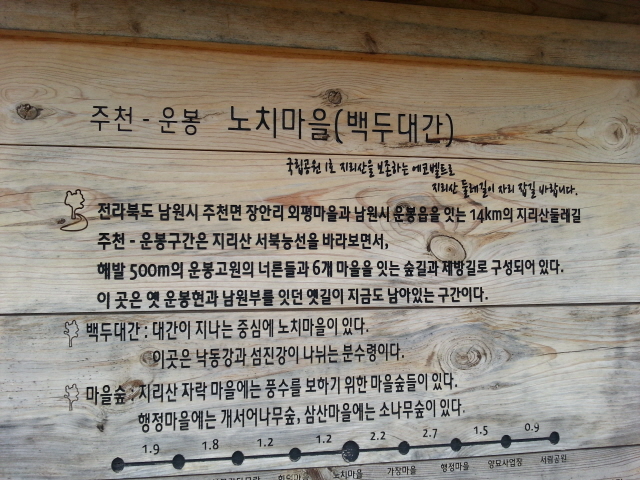 주천 - 운봉 노치마을(백두대간)
국립공원 1호 지리산을 보존하는 에코벨트로
지리산 둘레길이 자리 잡길 바랍니다.
전라북도 남원시 주천면 장안리 외평마을과 남원시 운봉읍을 잇는 14km의 지리산둘레길
주천 - 운봉구간은 지리산 서북능선을 바라보면서,
해발 500m의 운봉고원의 너른들과 6개 마을을 잇는 숲길과 제방길로 구성되어 있다.
이 곳은 옛 운봉현과 남원부를 잇던 옛길이 지금도 남아있는 구간이다.
백두대간 : 대간이 지나는 중심에 노치마을이 있다.
이곳은 낙동강과 섬진강이 나뉘는 분수령이다.
마을숲 : 지리산 자락 마을에는 풍수를 보하기 위한 마을숲들이 있다.
행정마을에는 개서어나무숲, 삼산마을에는 소나무숲이 있다.
1.9 1.8 1.2 1.2 2.2 2.7 1.5 0.9
노치마을 가장마을 행정마을 양묘사업장 서림공원